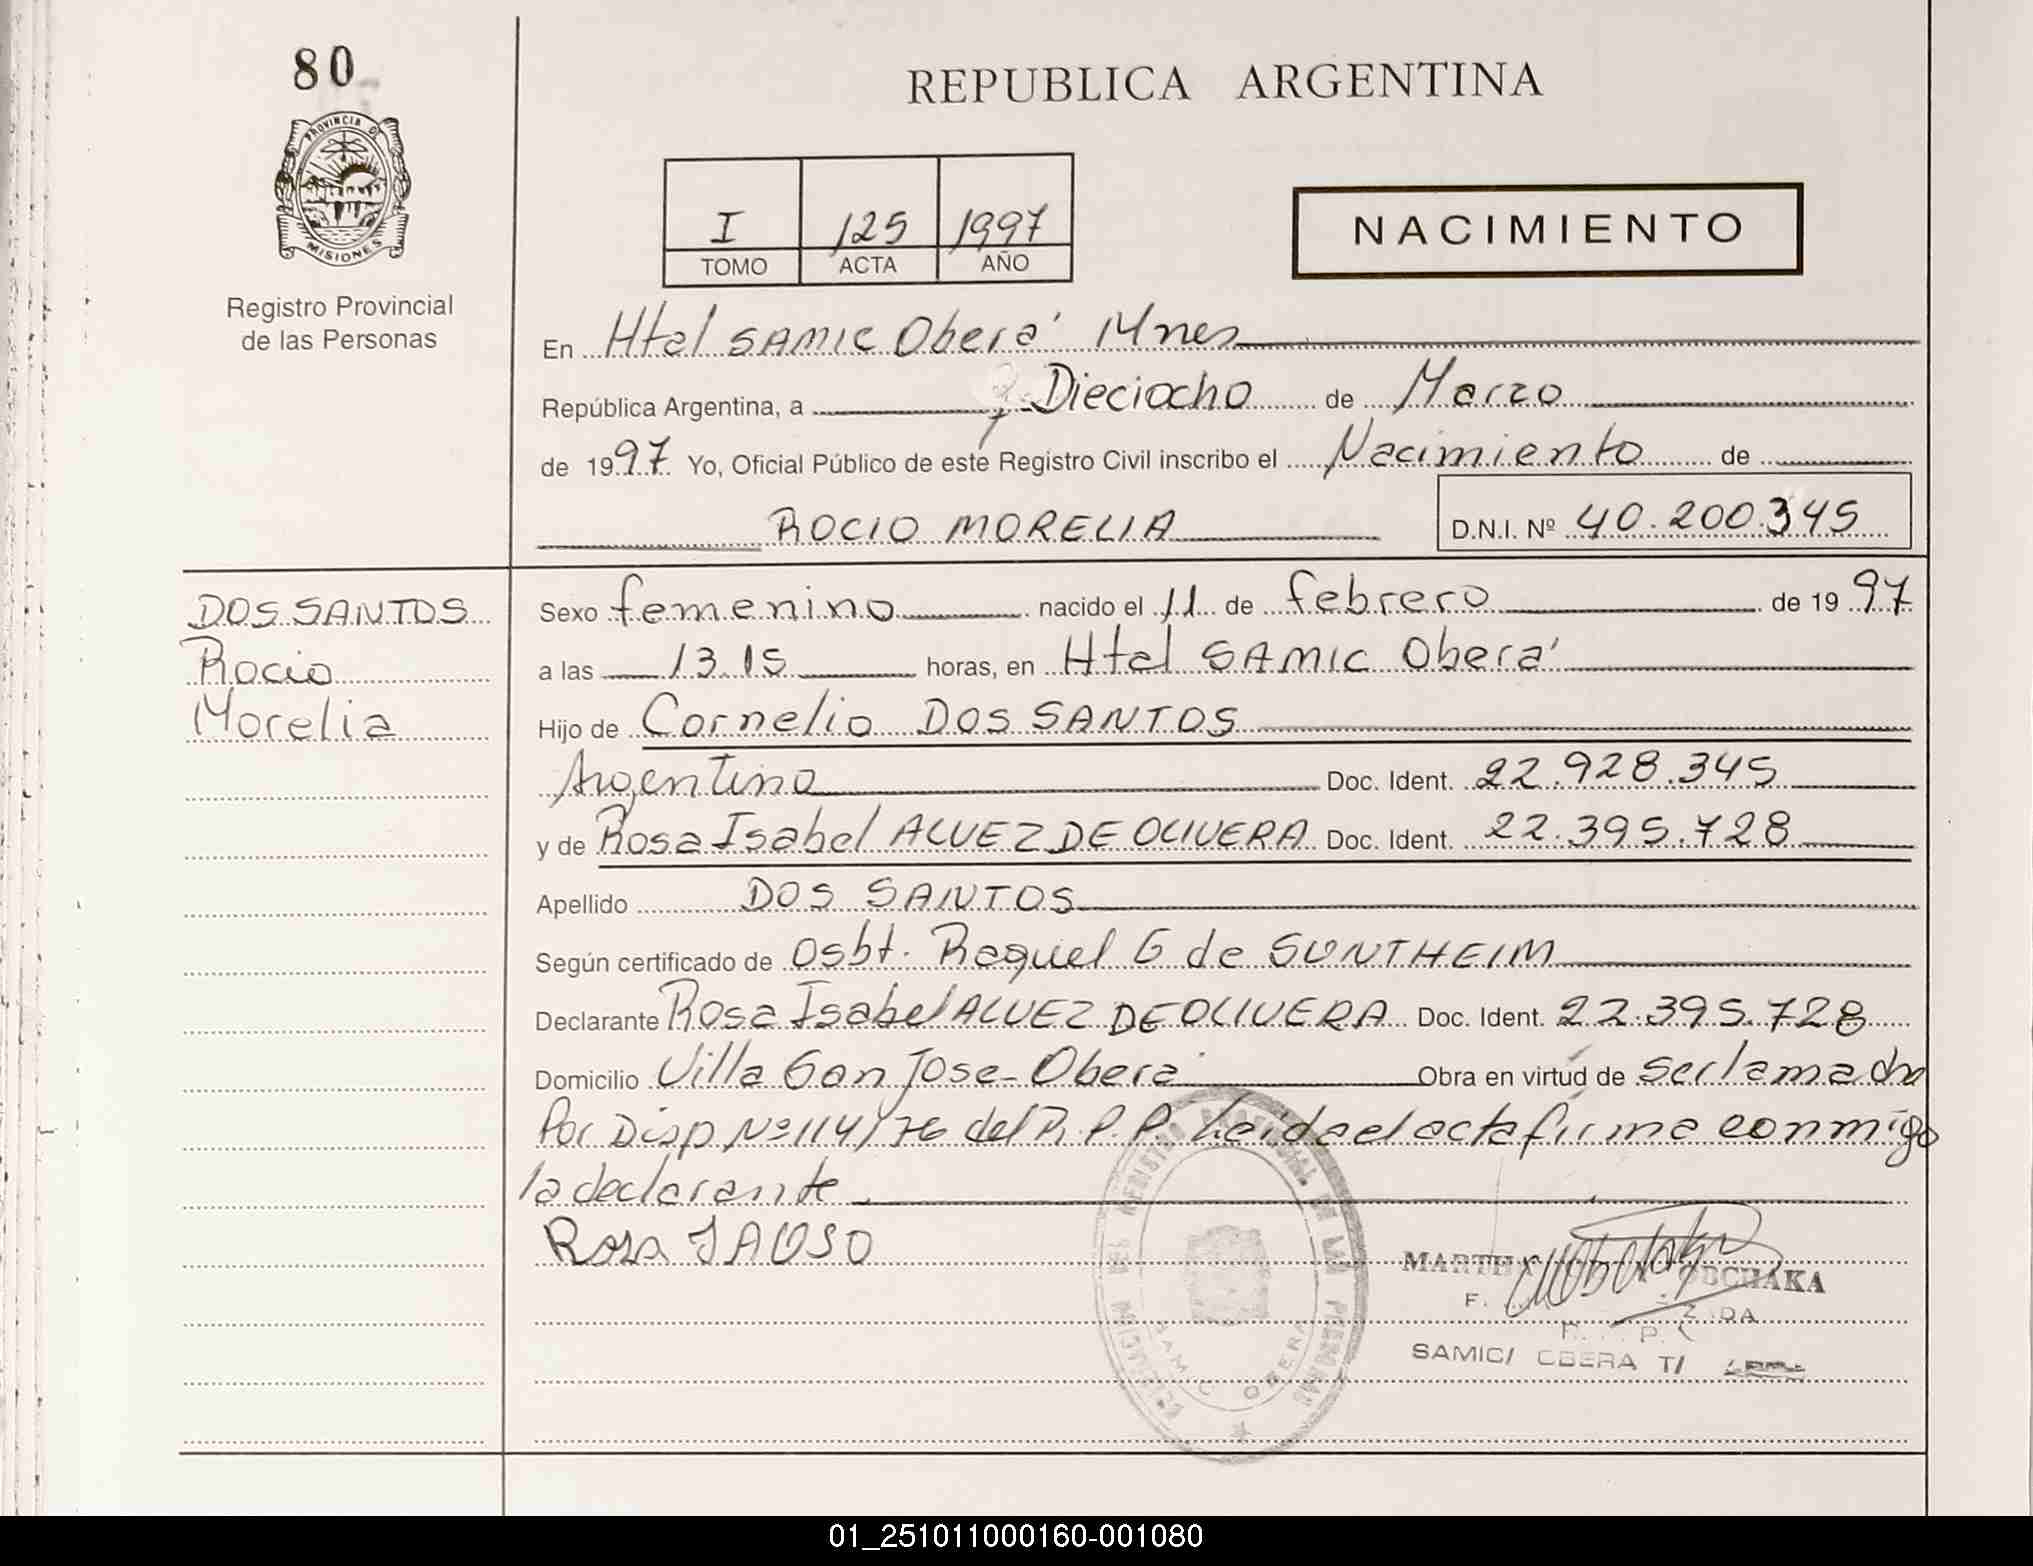 80
PROVINCIA DE
MISIONES
Registro Provincial
de las Personas
REPUBLICA ARGENTINA
I 125 1997
TOMO ACTA AÑO
NACIMIENTO
En Htal SAMIC Oberá Mnes
República Argentina, a Dieciocho de Marzo
de 1997 Yo, Oficial Público de este Registro Civil inscribo el Nacimiento de
ROCIO MORELIA D.N.I. Nº 40.200.345
DOS SANTOS
Rocio
Morelia
Sexo femenino nacido el 11 de febrero de 1997
a las 13.15 horas, en Htal SAMIC Oberá
Hijo de Cornelio DOS SANTOS
Argentino Doc. Ident. 22.928.345
y de Rosa Isabel ALVEZ DE OLIVERA Doc. Ident. 22.395.728
Apellido DOS SANTOS
Según certificado de Osbt. Raquel G de SUNTHEIM
Declarante Rosa Isabel ALVEZ DE OLIVERA Doc. Ident. 22.395.728
Domicilio Villa San Jose - Oberá Obra en virtud de ser la madre
Por Disp Nº 114/76 del R.P.P. Leida el acta firma conmigo
la declarante
Rosa
REGISTRO PROVINCIAL DE LAS PERSONAS
SAMIC OBERA
MARTHA
SAMIC/ OBERA T/
01_251011000160-001080